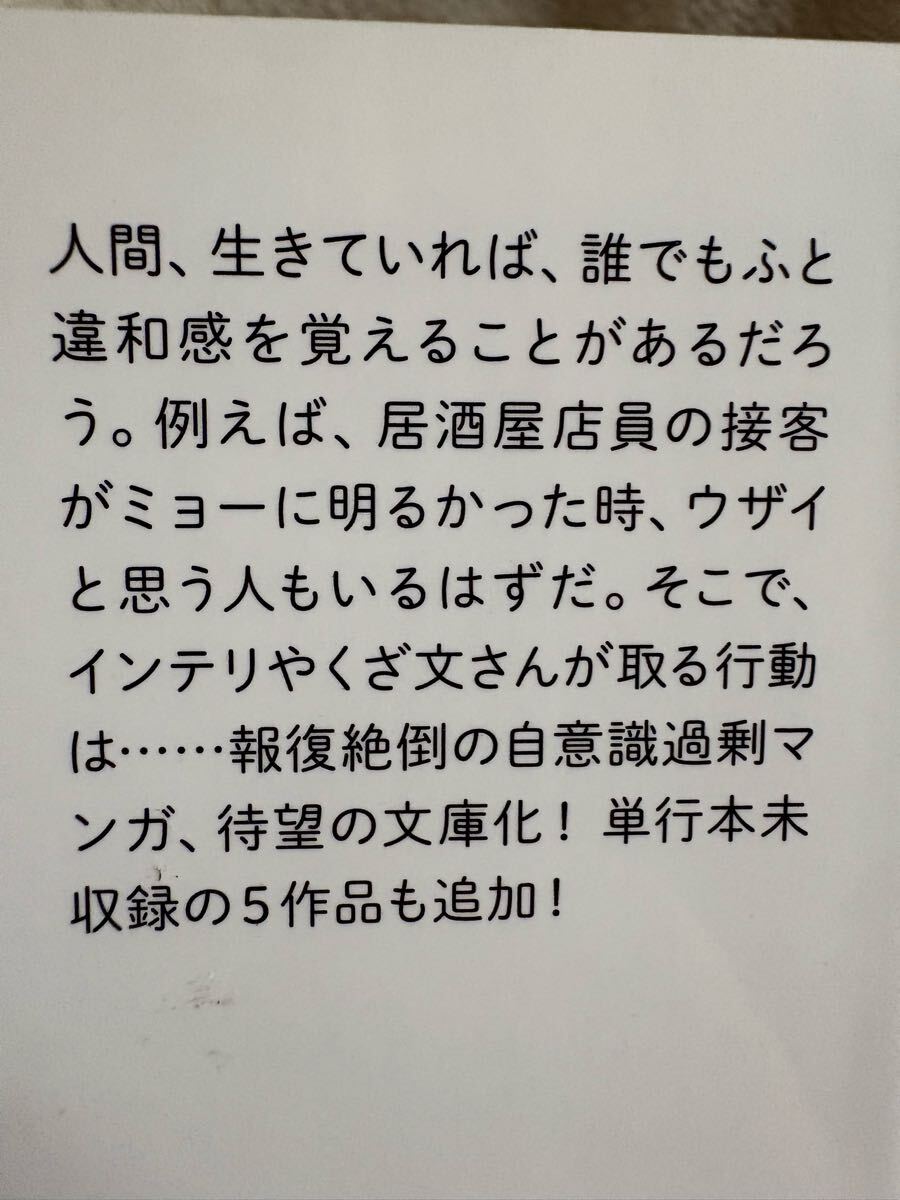 人間、生きていれば、誰でもふと
違和感を覚えることがあるだろ
う。例えば、居酒屋店員の接客
がミョーに明るかった時、ウザイ
と思う人もいるはずだ。そこで、
インテリやくざ文さんが取る行動
は……報復絶倒の自意識過剰マ
ンガ、待望の文庫化! 単行本未
収録の5作品も追加!